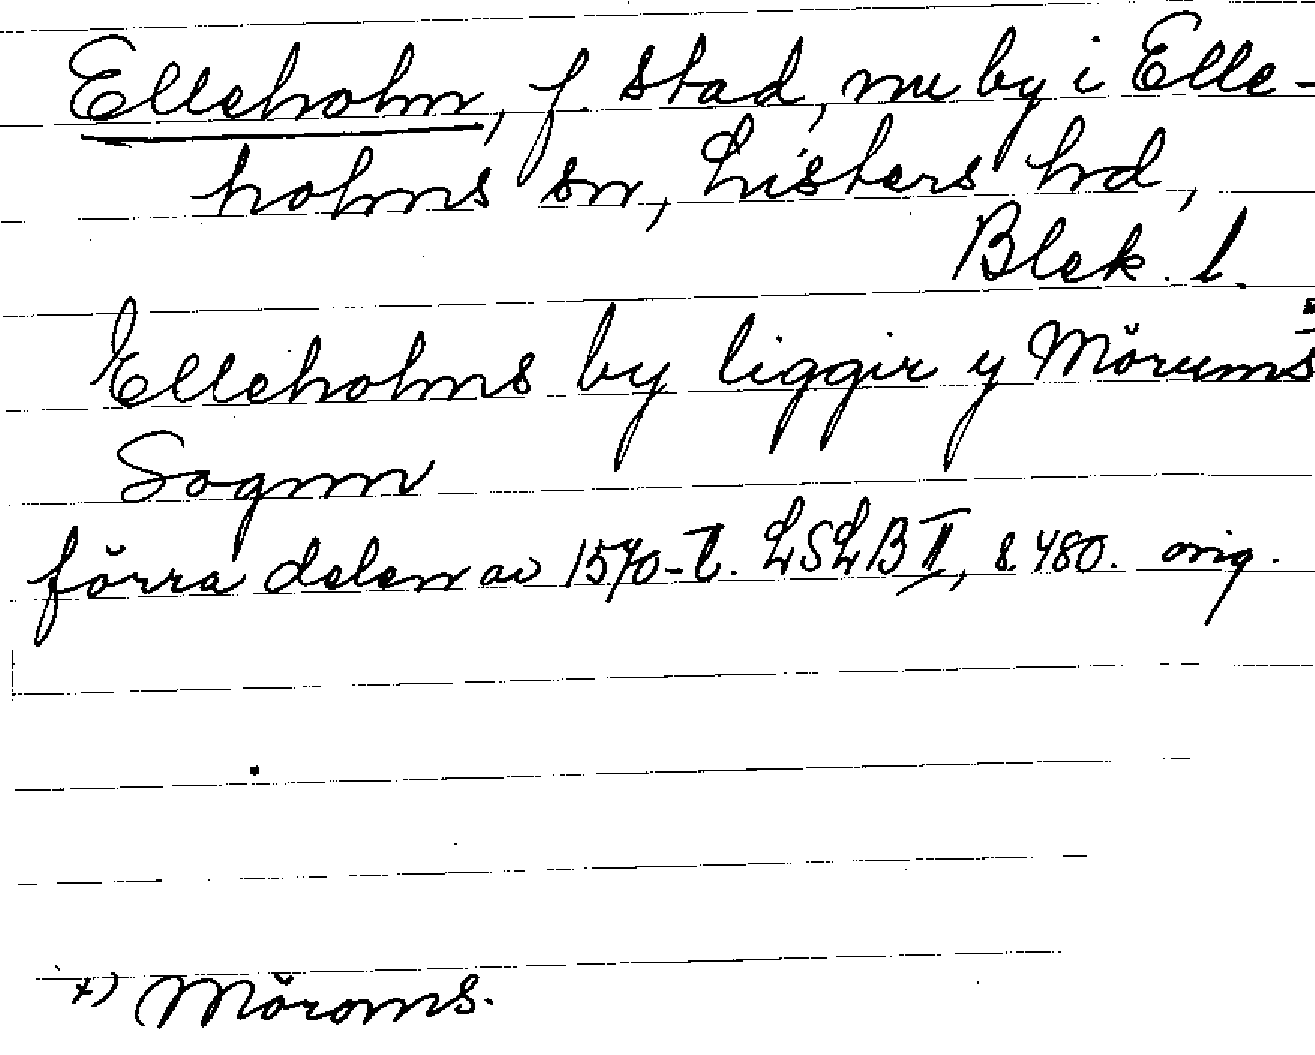 Elleholm, f. stad, nu by i Elle-
holms sn, Listers hd,
Blek. l.
Elleholms by liggir y Mörums
Sognn
förra delen av 1570-t. LSLB II, s. 480. orig.
x) Möroms.